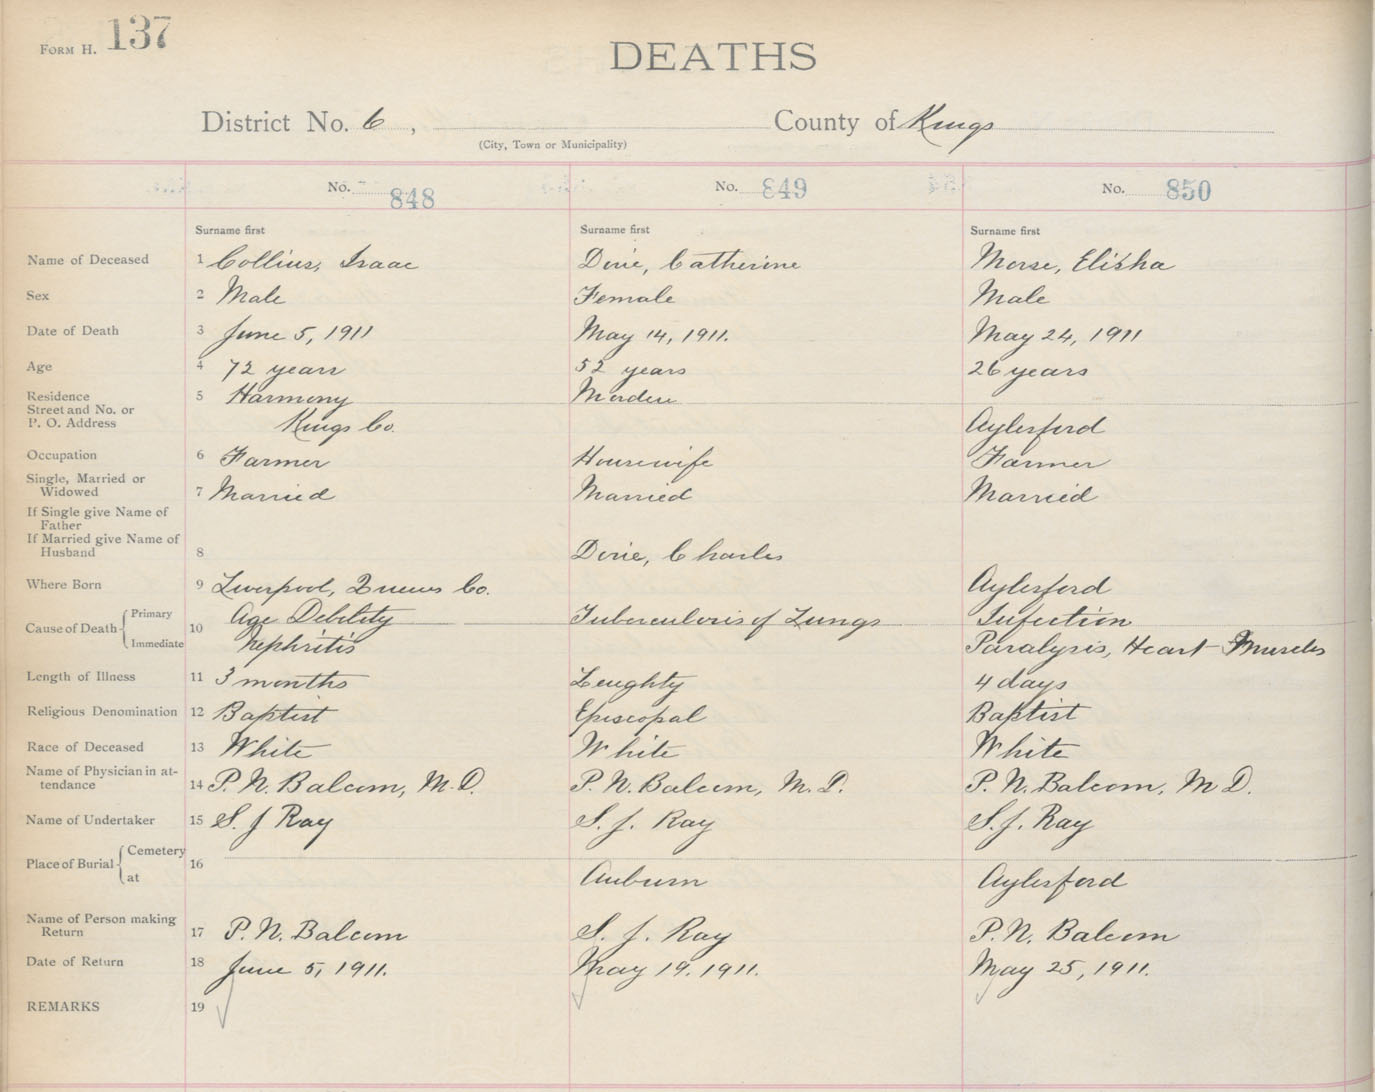 FORM H. 137
DEATHS
District No. 6, County of Kings
(City, Town or Municipality)
No. 848 No. 849 No. 850
Surname first Surname first Surname first
Name of Deceased 1 Collins, Isaac Dirie, Catherine Morse, Elisha
Sex 2 Male Female Male
Date of Death 3 June 5, 1911 May 14, 1911. May 24, 1911
Age 4 72 years 52 years 26 years
Residence 5 Harmony Morden
Street and No. or
P. O. Address Kings Co. Aylesford
Occupation 6 Farmer Housewife Farmer
Single, Married or
Widowed 7 Married Married Married
If Single give Name of
Father
If Married give Name of
Husband 8 Dirie, Charles
Where Born 9 Liverpool, Queens Co. Aylesford
Cause of Death Primary 10 Age Debility Tuberculosis of Lungs Infection
Immediate Nephritis Paralysis, Heart Muscles
Length of Illness 11 3 months Lenghty 4 days
Religious Denomination 12 Baptist Episcopal Baptist
Race of Deceased 13 White White White
Name of Physician in at-
tendance 14 P. N. Balcom, M.D. P. N. Balcom, M.D. P. N. Balcom, M D.
Name of Undertaker 15 S. J Ray S. J. Ray S. J. Ray
Place of Burial Cemetery 16
at Auburn Aylesford
Name of Person making
Return 17 P. N. Balcom S. J. Ray P. N. Balcom
Date of Return 18 June 5, 1911. May 19. 1911. May 25, 1911.
REMARKS 19